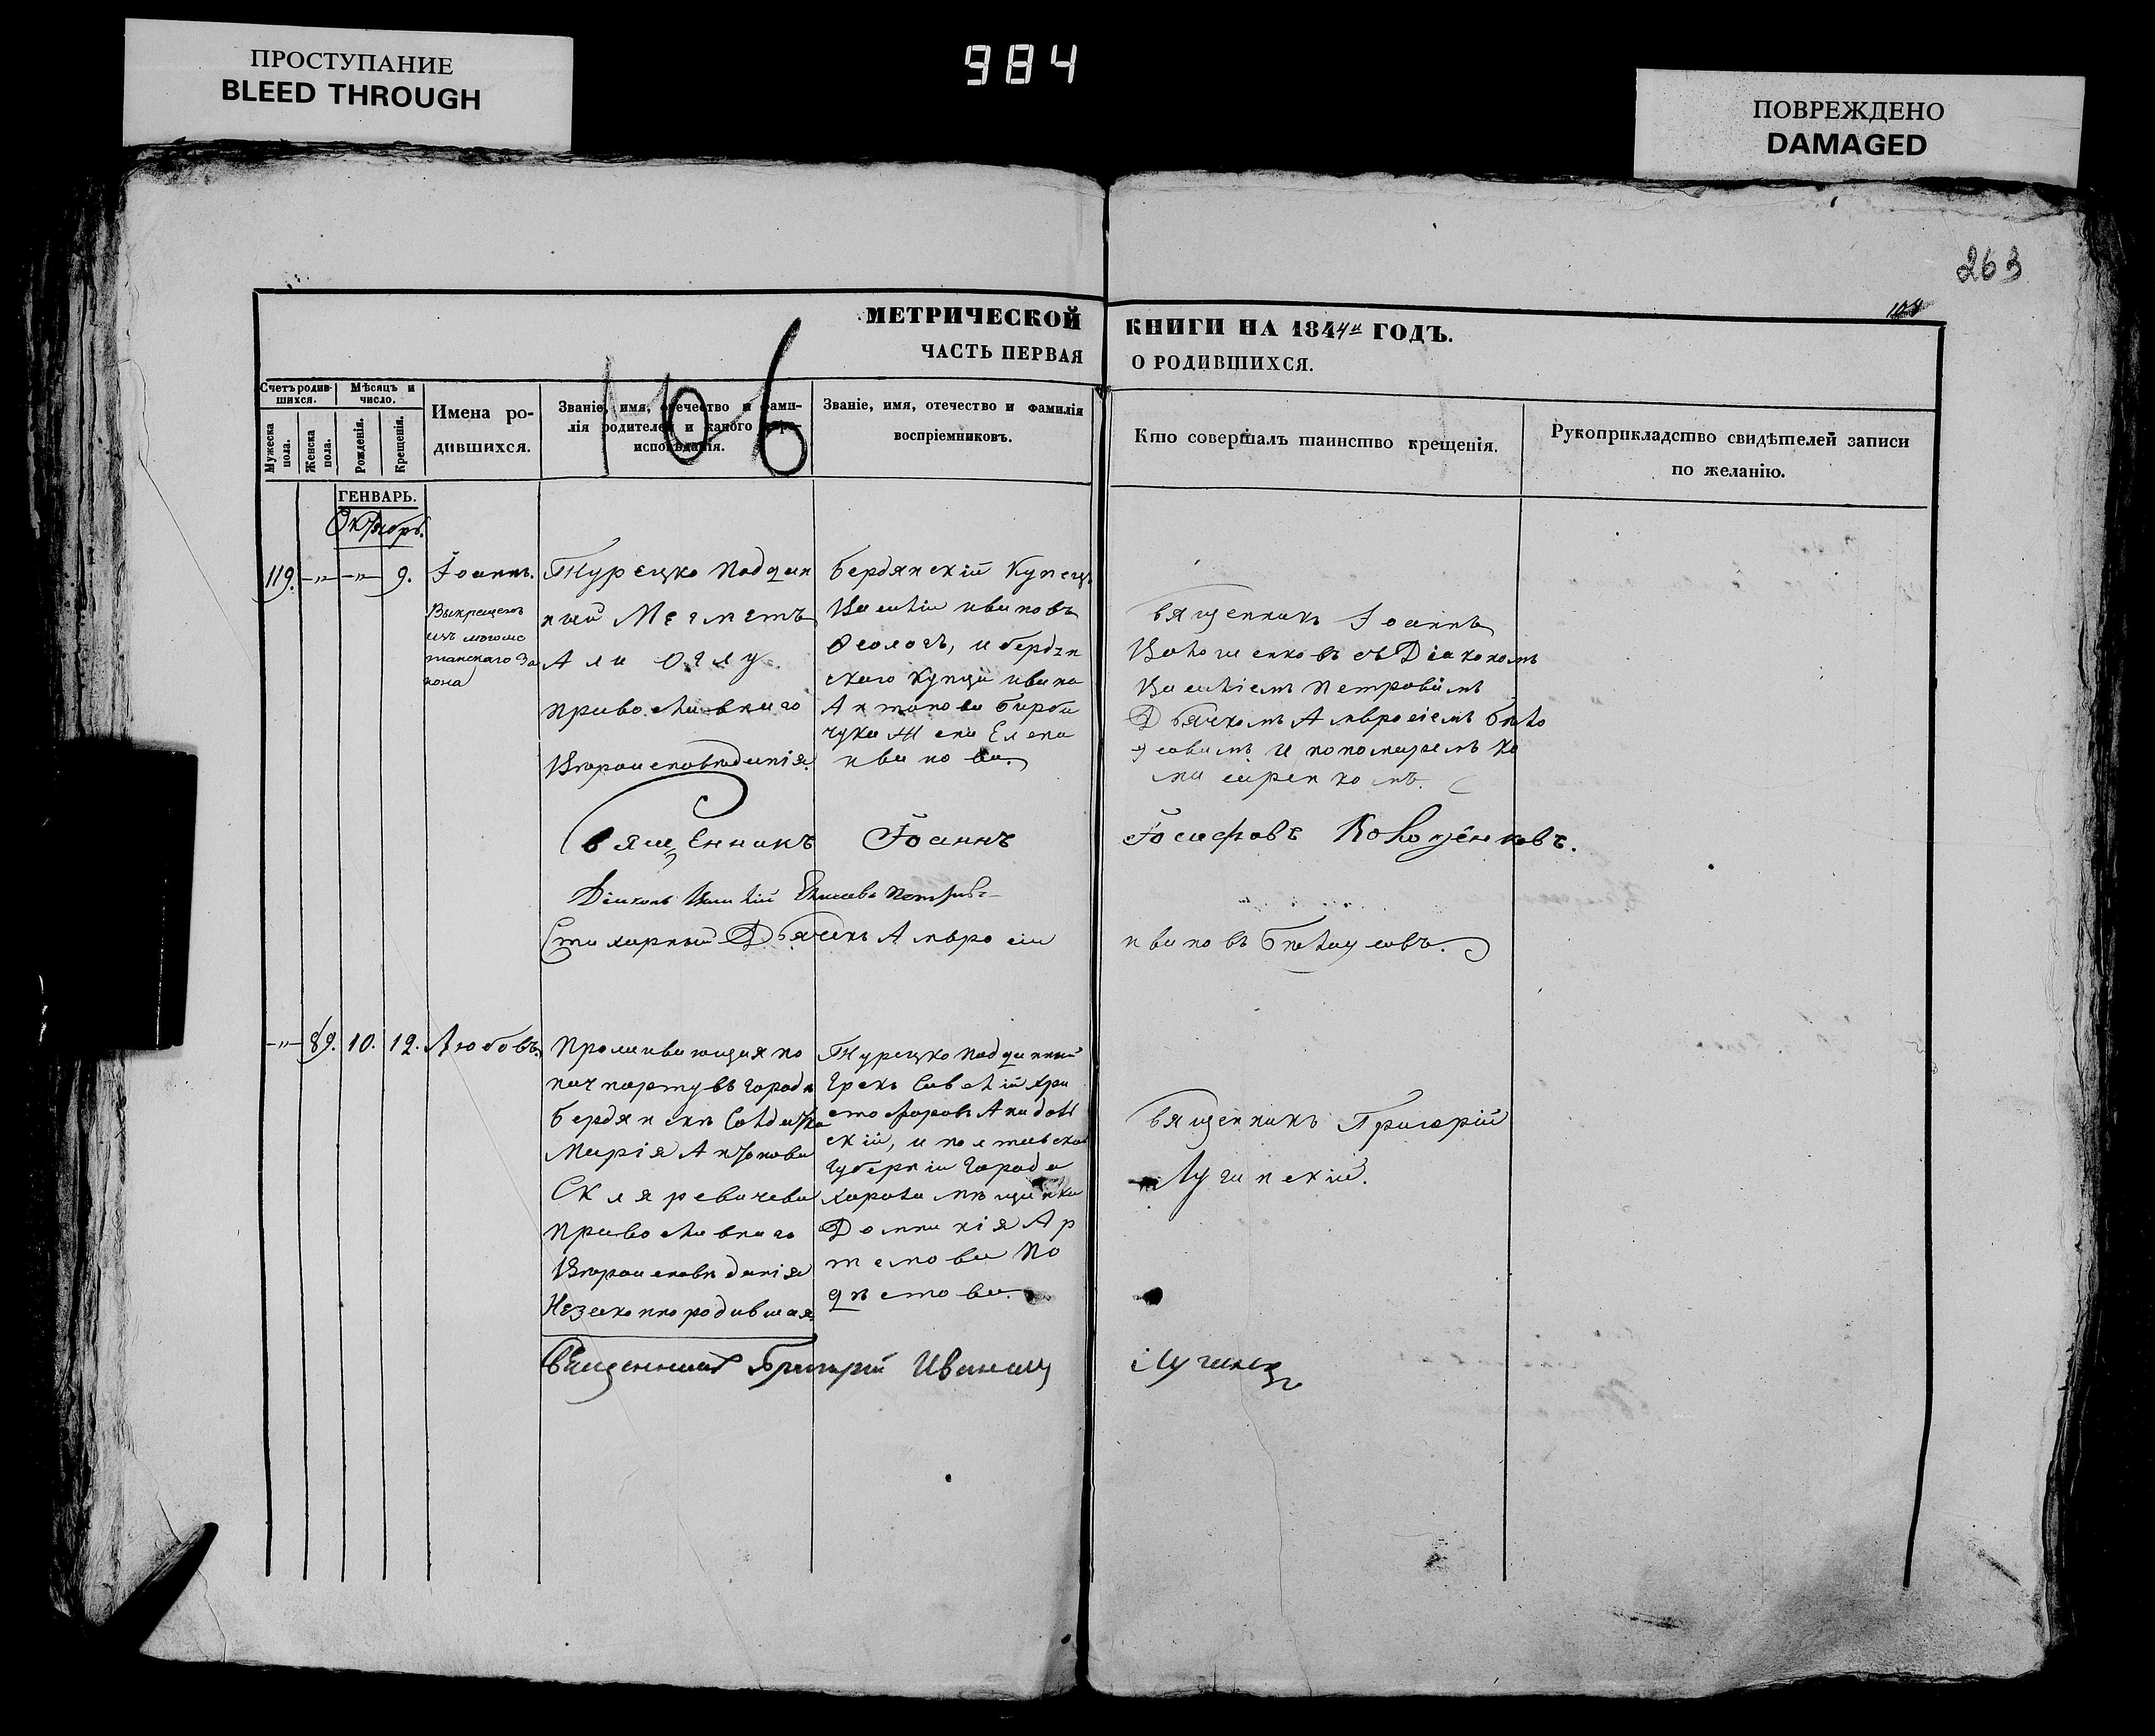 ПРОСТУПАНИЕ
BLEED THROUGH
984
ПОВРЕЖДЕНО
DAMAGED
263
МЕТРИЧЕСКОЙ КНИГИ НА 1844й ГОДЪ.
ЧАСТЬ ПЕРВАЯ О РОДИВШИХСЯ.
106
Счетъ родив-
шихся.
Мѣсяцъ и
число.
Мужеска
пола.
Женска
пола.
Рожденія.
Крещенія.
Имена ро-
дившихся.
Званіе, имя, отечество и фами-
лія родителей и какого вѣро-
исповѣданія.
Званіе, имя, отечество и фамилія
воспріемниковъ.
Кто совершалъ таинство крещенія.
Рукоприкладство свидѣтелей записи
по желанію.
ГЕНВАРЬ.
Октябрь.
119. -„- -„- 9.
Іоаннъ.
Выкрещенъ
изъ магоме
танскаго За
кона
Турецко поддан
ный Мегметъ
Али Оглу
православнаго
Вѣроисповѣданія.
Бердянскій Купецъ
Василій Ивановъ
Феологъ, и бердян
скаго Купца Ивана
Антонова
жена Елена
Иванова.
Священникъ Іоаннъ
съ Діакономъ
Василіемъ Петровымъ
Дьячкомъ Амвросіемъ Бѣло
усовымъ и пономаремъ
Священникъ Іоаннъ Іосифовъ
Діаконъ Василій Петровъ
Стихарный Дьячекъ Амвросій Ивановъ Бѣлоусовъ.
-„- 89. 10. 12.
Любовь.
Проживающая по
пачпорту въ городѣ
Бердянскѣ Солдатка
Марія Антонова
Скляревичева
православнаго
Вѣроисповѣданія
Незаконнородившая.
Турецко подданный
Грекъ Савелій Хри
стофоровъ
скій, и полтавской
Губерніи Города
Хорола мѣщанка
Домникія Ар
темова
Священникъ Григорій
Лучинскій.
Священникъ Григорій Иванов